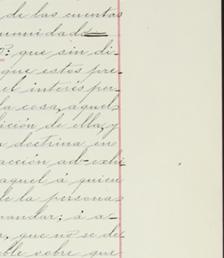 de las cuentas
munidad
: que sin di-
que estos pre-
el interés per-
la cosa, aquel
ición de ella, y
a doctrina en
acción ad
aquel á quien
de la persona
mandar; á a-
que no se de
ble sobre que